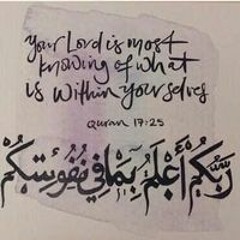 your Lord is most
knowing of what
is within yourselves
Quran 17:25
رَبُّكُمْ أَعْلَمُ بِمَا فِي نُفُوسِكُمْ